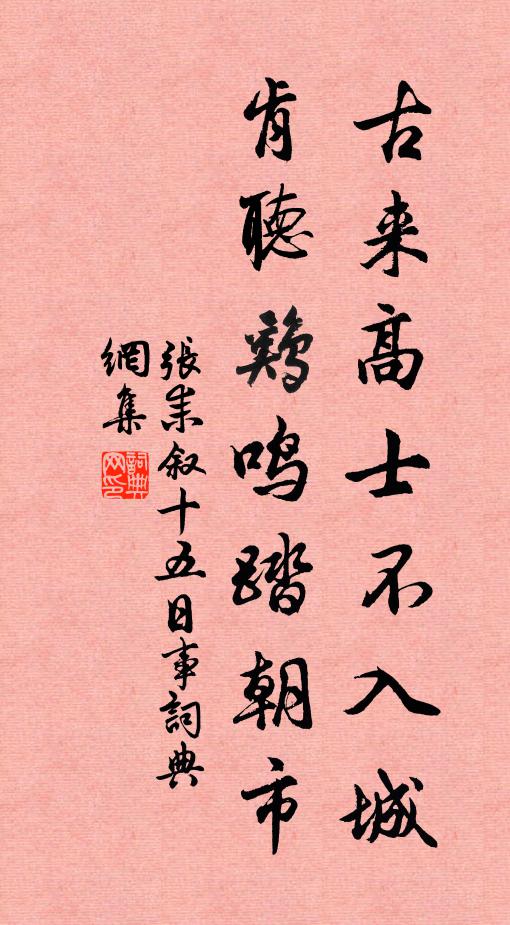 古来高士不入城
肯聽鷄鳴踏朝市
張耒叙十五日事詞典
網集
詞典网印